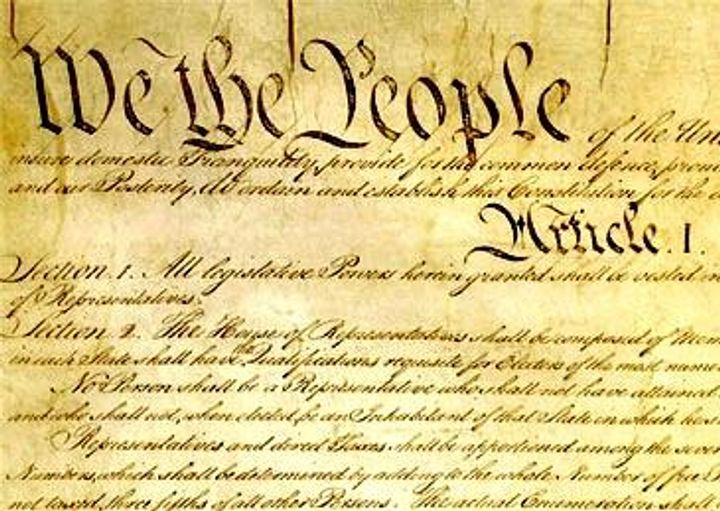 We the People of the Un
insure domestic Tranquility, provide for the common defence, prom
and our Posterity, do ordain and establish this Constitution for the
Article. I.
Section. 1. All legislative Powers herein granted shall be vested in
of Representatives.
Section. 2. The House of Representatives shall be composed of Mem
in each State shall have the Qualifications requisite for Electors of the most nume
No Person shall be a Representative who shall not have attained
and who shall not, when elected, be an Inhabitant of that State in which he s
Representatives and direct Taxes shall be apportioned among the seve
Numbers, which shall be determined by adding to the whole Number of free
not taxed, three fifths of all other Persons. The actual Enumeration shall